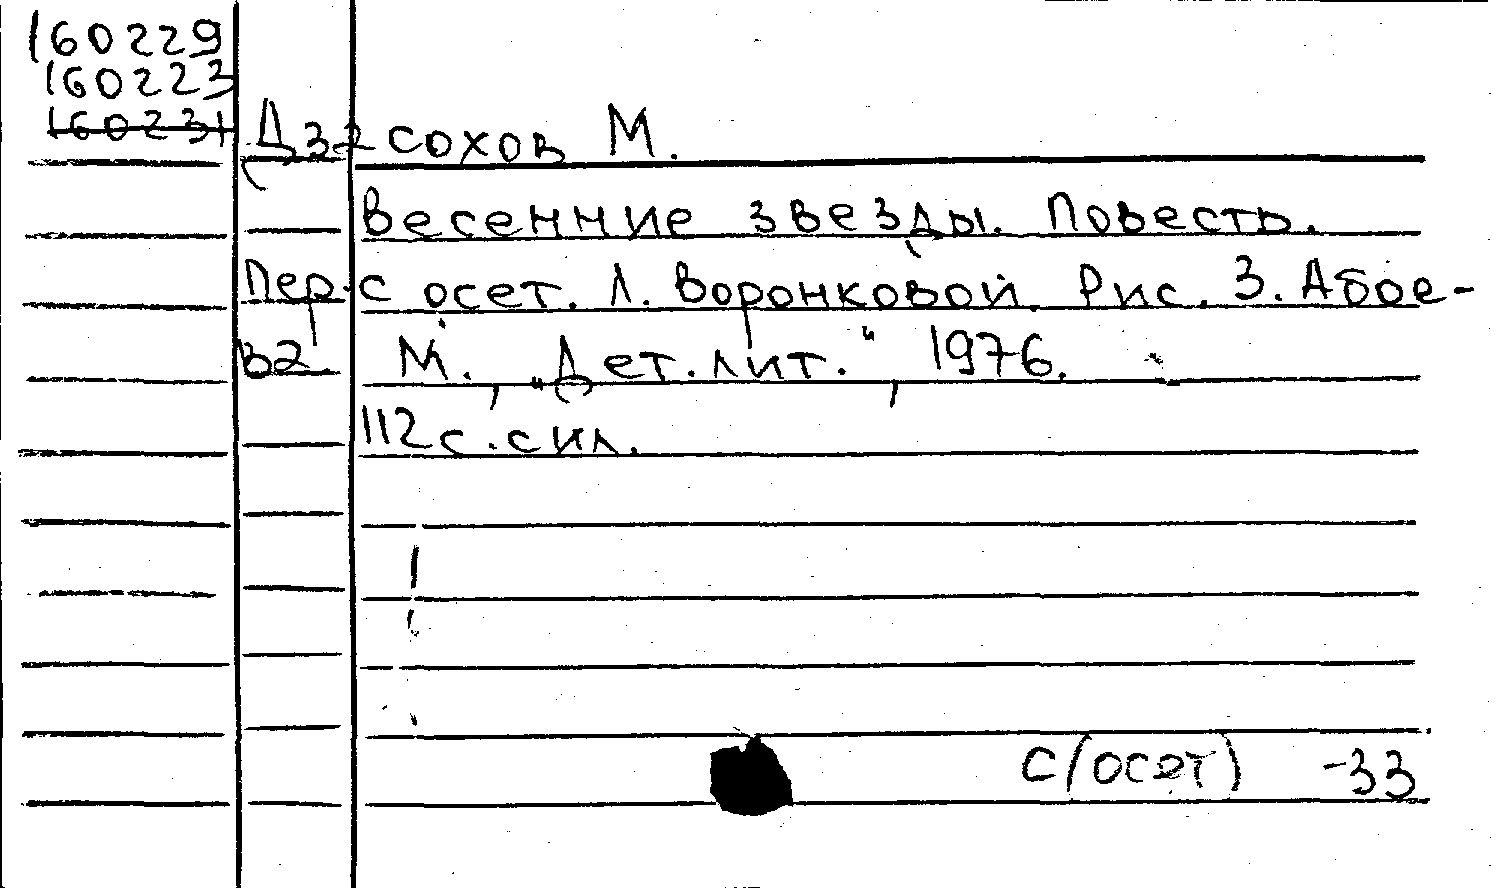 160229
160223
160231
Дзасохов М.
Весенние звезды. Повесть.
Пер. с осет. Л. Воронковой. Рис. З. Абое-
ва. М., „Дет. лит.“, 1976.
112 с. с ил.
С(осет) -33